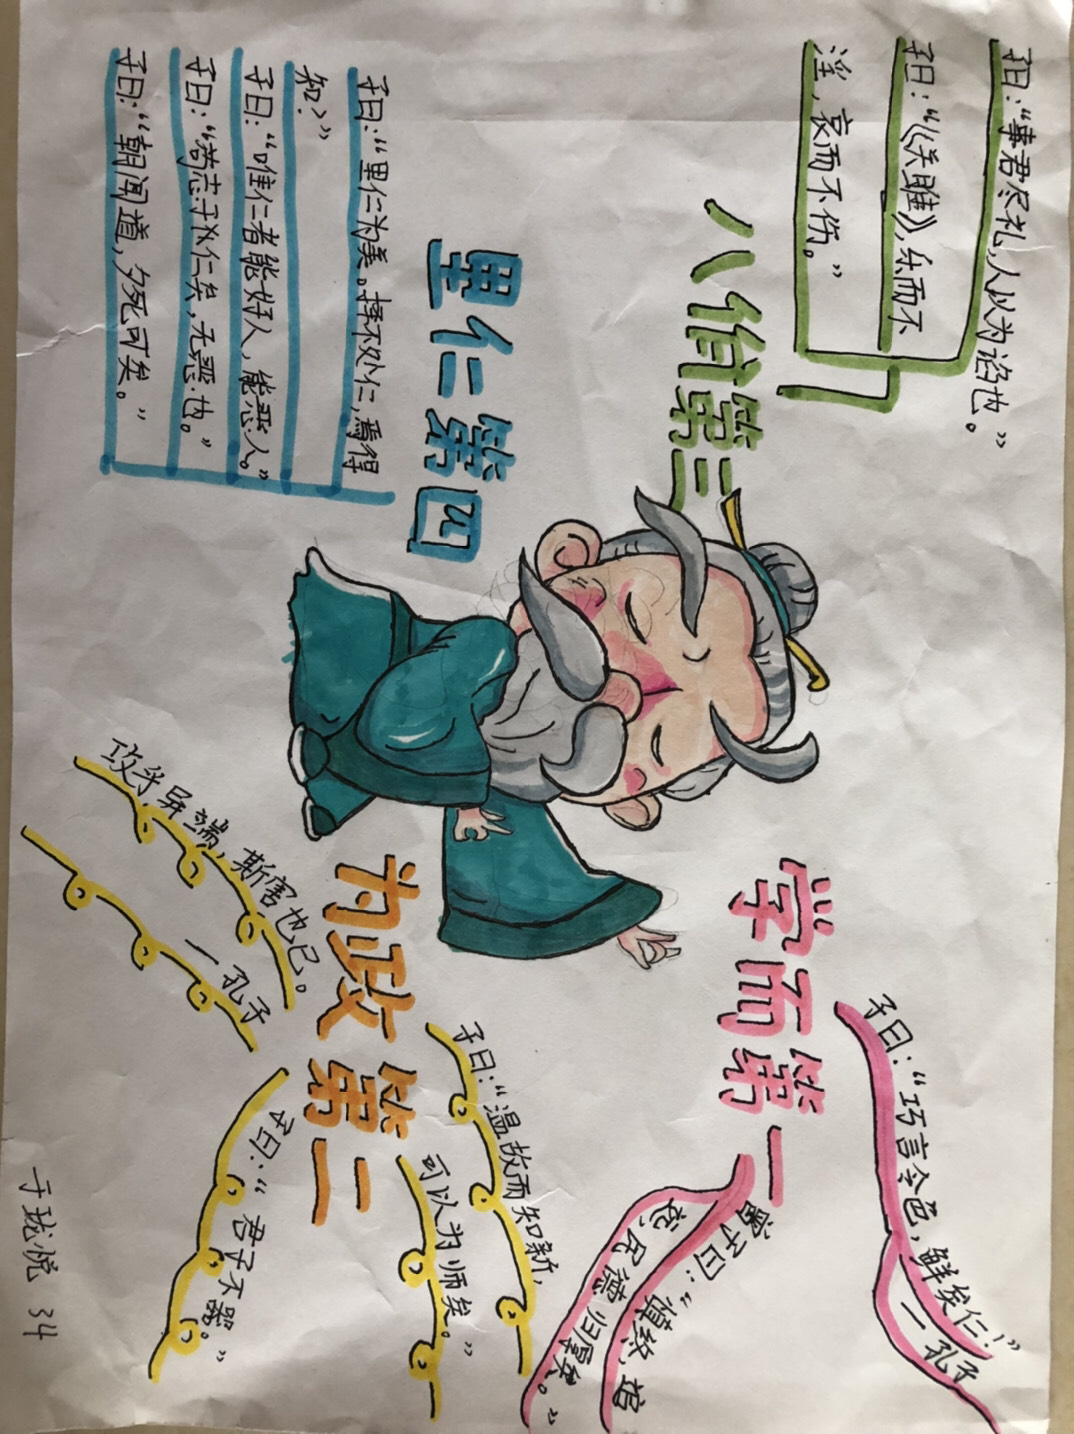 八佾第三
子曰：“事君尽礼，人以为谄也。”
子曰：“《关雎》，乐而不
淫，哀而不伤。”
里仁第四
子曰：“里仁为美。择不处仁，焉得
知？”
子曰：“唯仁者能好人，能恶人。”
子曰：“苟志于仁矣，无恶也。”
子曰：“朝闻道，夕死可矣。”
学而第一
子曰：“巧言令色，鲜矣仁！”
一孔子
曾子曰：“慎终，追
远，民德归厚矣。”
为政第二
子曰：“温故而知新，
可以为师矣。”
攻乎异端，斯害也已。
一孔子
子曰：“君子不器。”
于珑悦 34